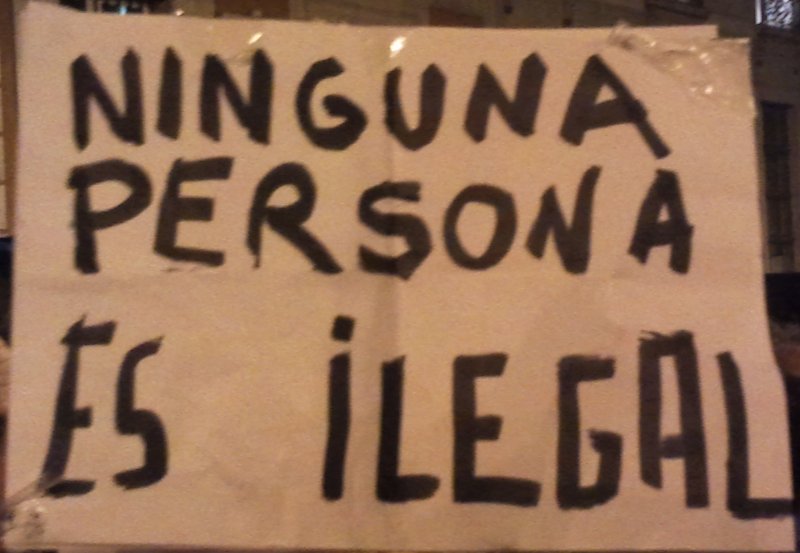 NINGUNA
PERSONA
ES iLEGAL